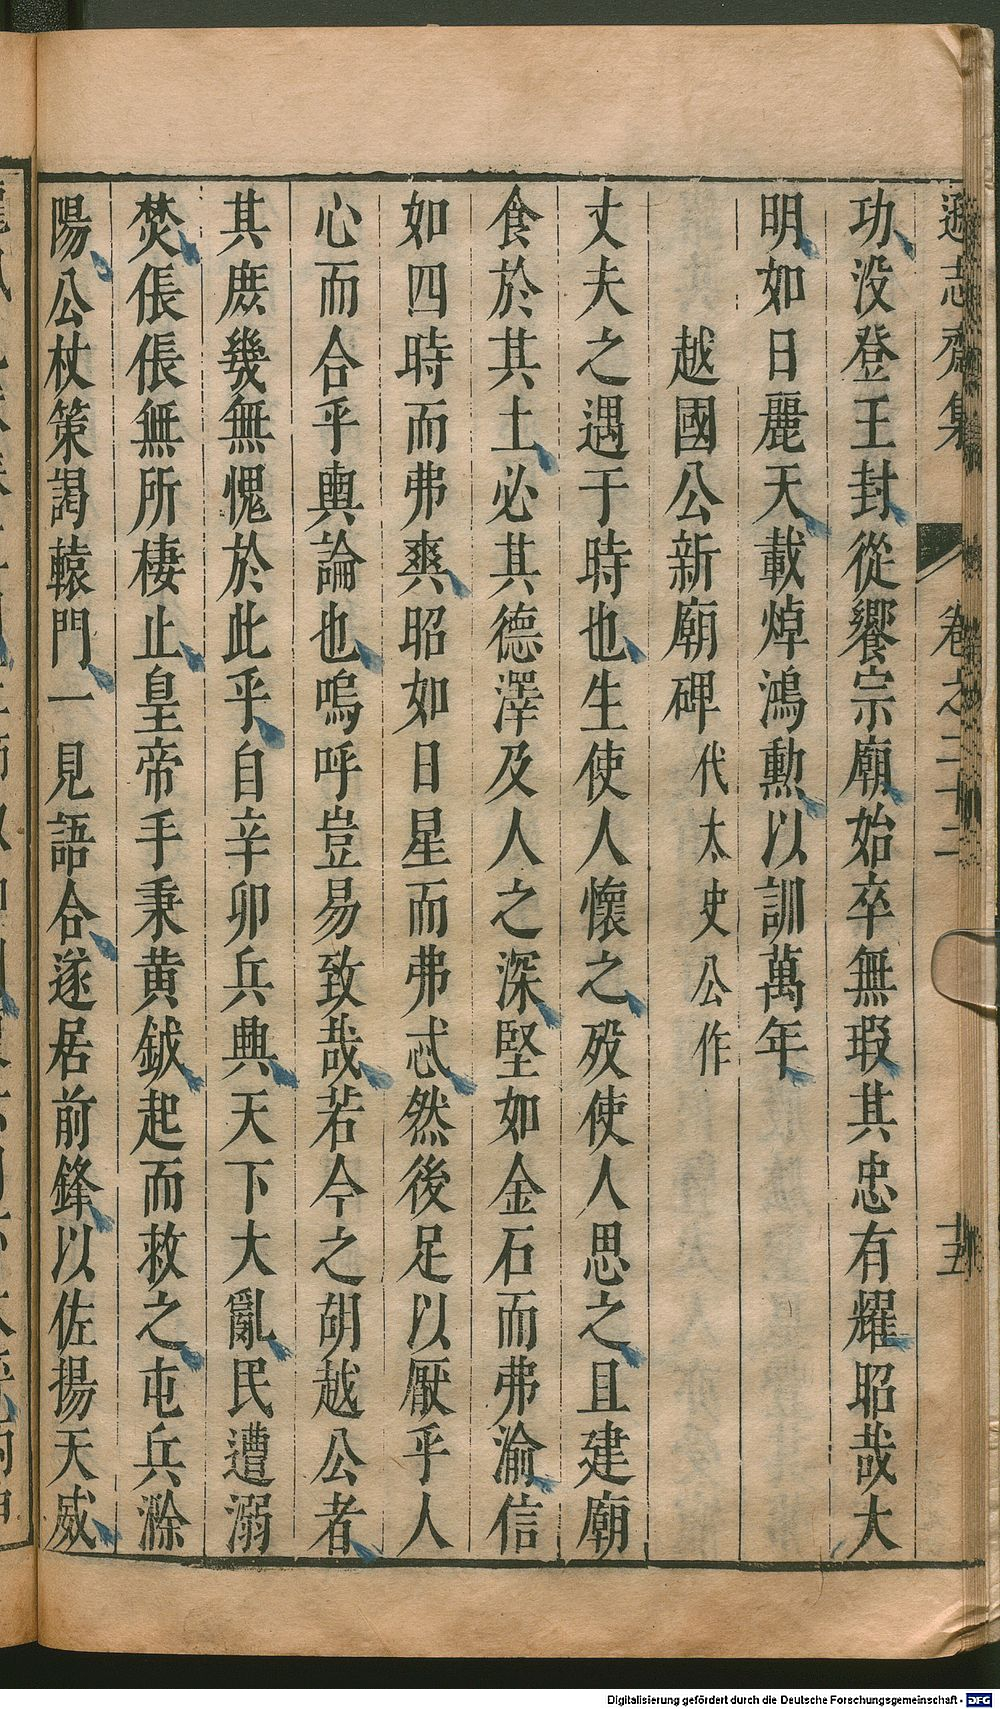 遜志齋集 卷之二十二 十五
功没登王封從饗宗廟始卒無瑕其忠有耀昭哉大
明如日麗天載焯鴻勲以訓萬年
越國公新廟碑代太史公作
丈夫之遇于時也生使人懷之殁使人思之且建廟
食於其土必其德澤及人之深堅如金石而弗渝信
如四時而弗爽昭如日星而弗忒然後足以厭乎人
心而合乎輿論也嗚呼豈易致哉若今之胡越公者
其庶幾無愧於此乎自辛卯兵興天下大亂民遭溺
焚倀倀無所棲止皇帝手秉黄鉞起而救之屯兵滁
陽公杖策謁轅門一見語合遂居前鋒以佐揚天威
Digitalisierung gefördert durch die Deutsche Forschungsgemeinschaft - DFG